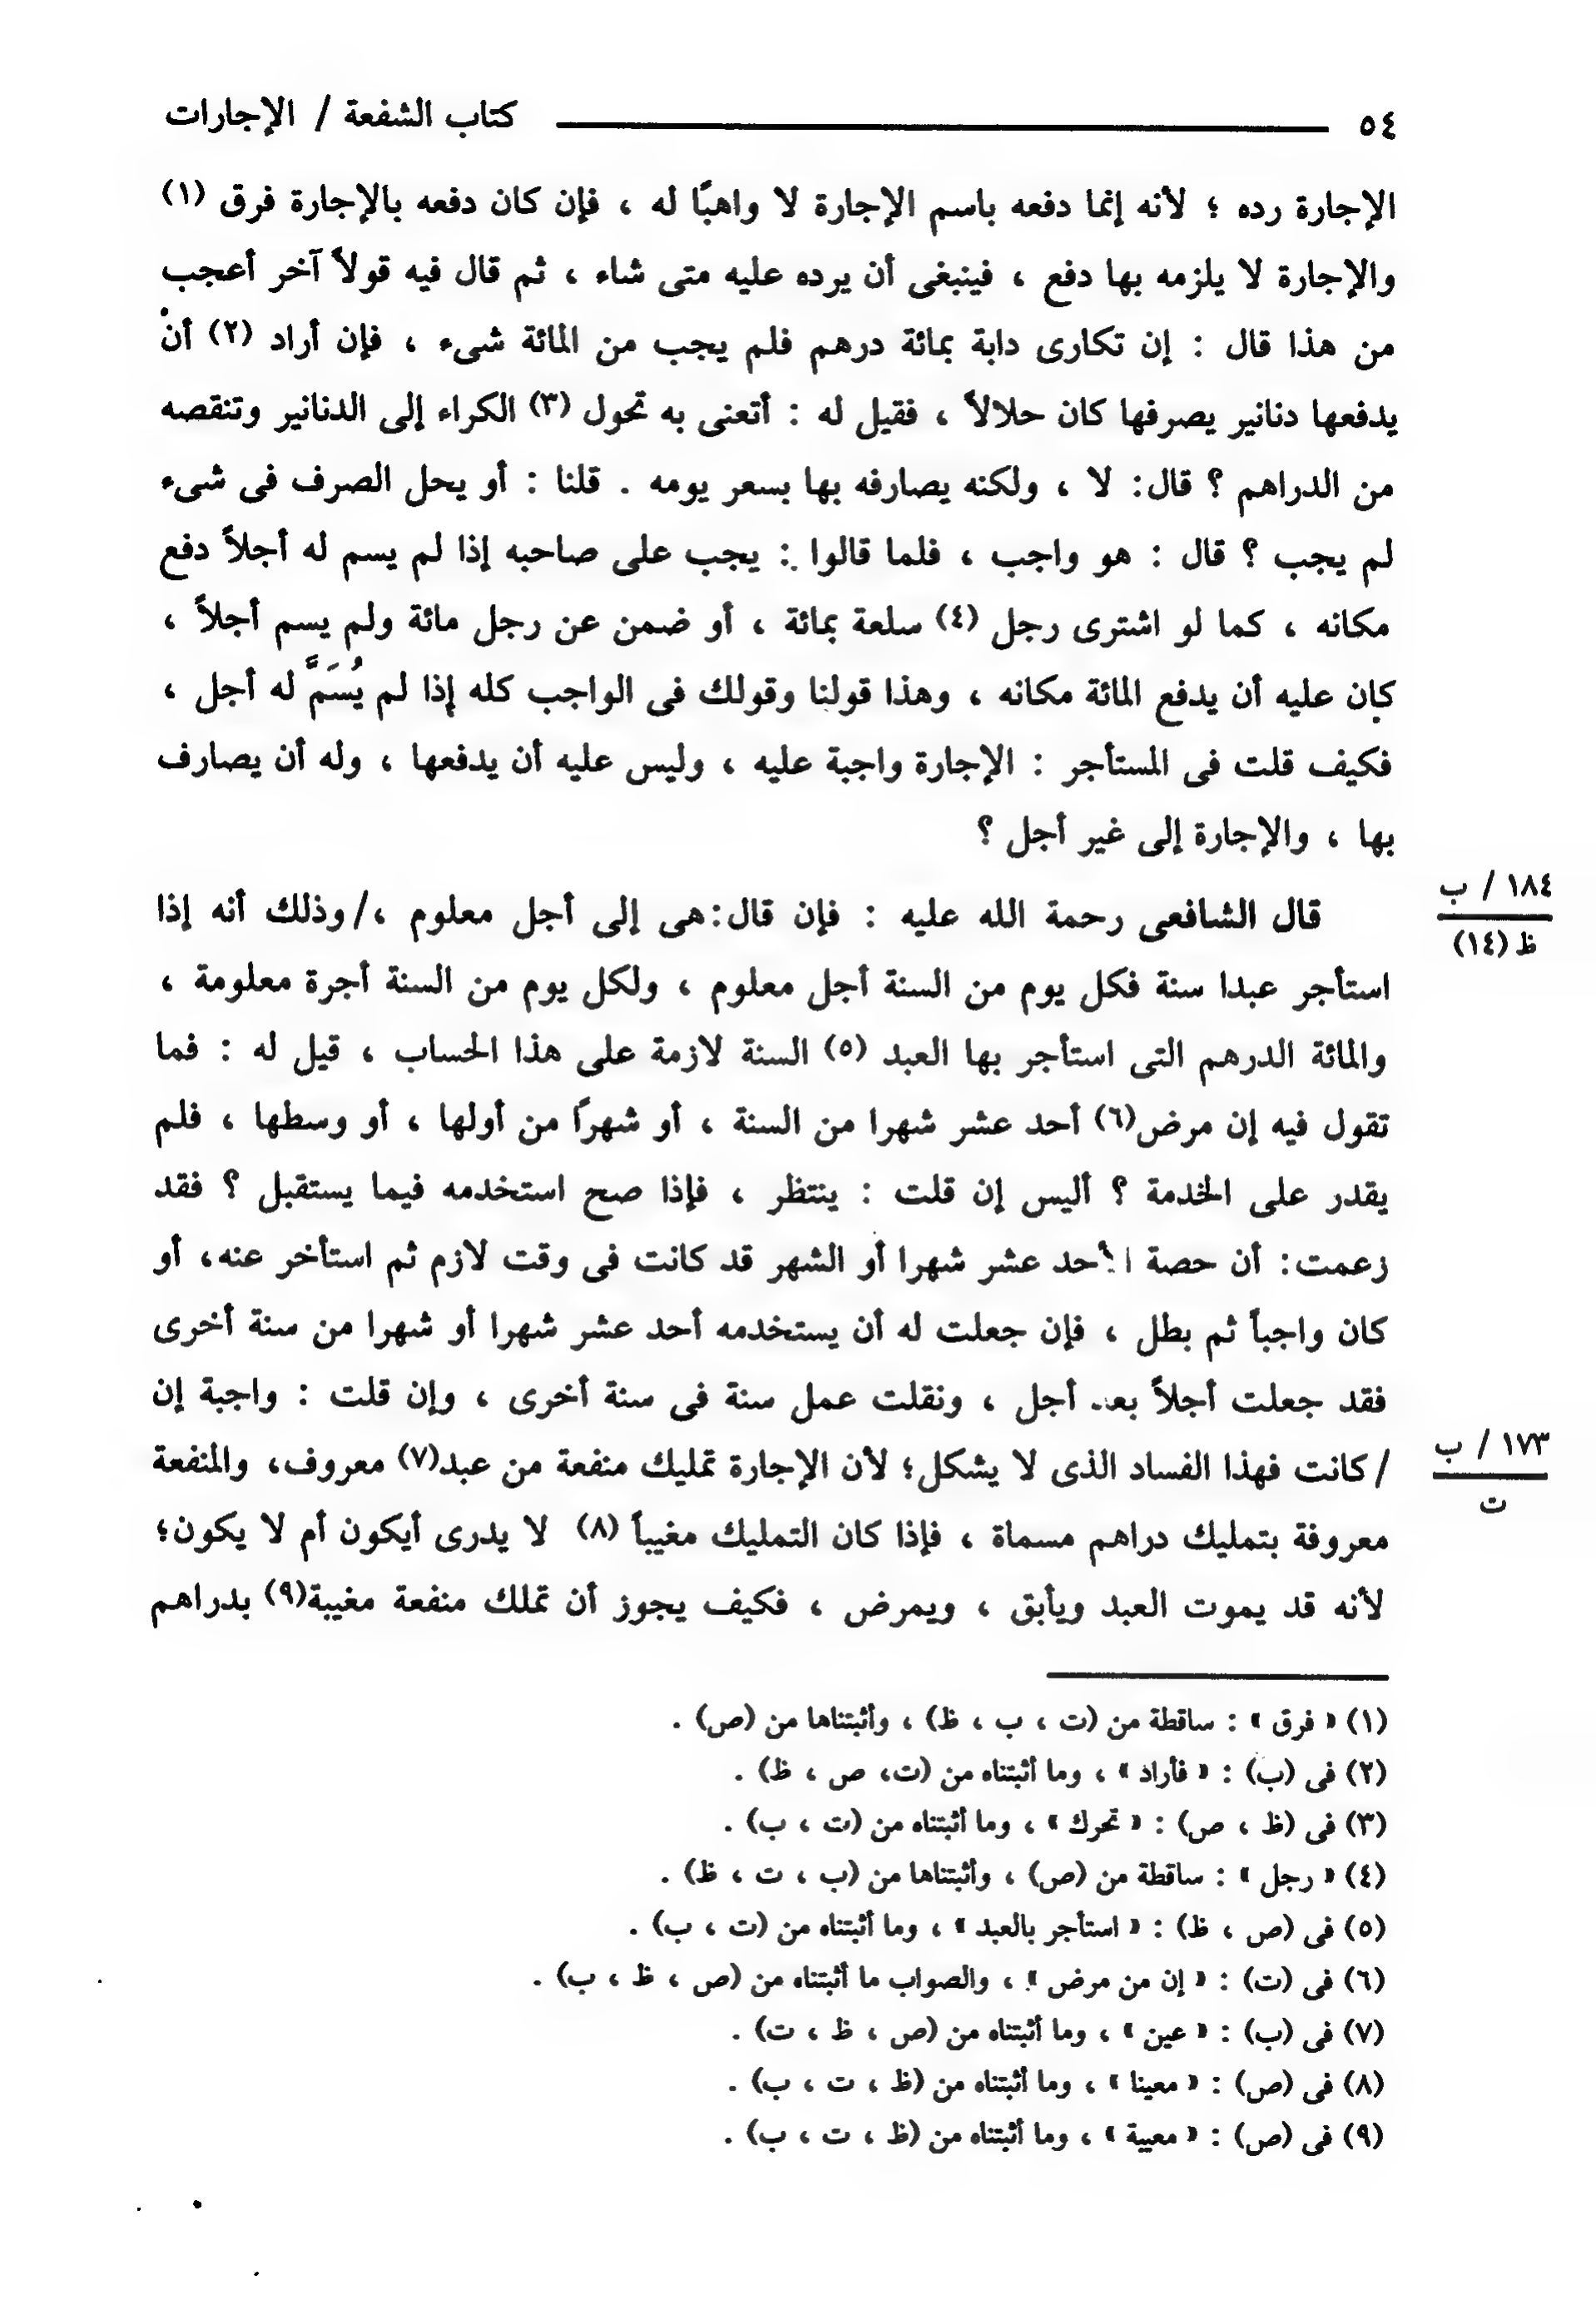 ٥٤ كتاب الشفعة / الإجارات
الإجارة رده ؛ لأنه إنما دفعه باسم الإجارة لا واهبًا له ، فإن كان دفعه بالإجارة فرق (١)
والإجارة لا يلزمه بها دفع ، فينبغى أن يرده عليه متى شاء ، ثم قال فيه قولاً آخر أعجب
من هذا قال : إن تكارى دابة بمائة درهم فلم يجب من المائة شىء ، فإن أراد (٢) أنْ
يدفعها دنانير يصرفها كان حلالاً ، فقيل له : أتعنى به تحول (٣) الكراء إلى الدنانير وتنقصه
من الدراهم ؟ قال: لا ، ولكنه يصارفه بها بسعر يومه . قلنا : أو يحل الصرف فى شىء
لم يجب ؟ قال : هو واجب ، فلما قالوا : يجب على صاحبه إذا لم يسم له أجلاً دفع
مكانه ، كما لو اشترى رجل (٤) سلعة بمائة ، أو ضمن عن رجل مائة ولم يسم أجلاً ،
كان عليه أن يدفع المائة مكانه ، وهذا قولنا وقولك فى الواجب كله إذا لم يُسَمَّ له أجل ،
فكيف قلت فى المستأجر : الإجارة واجبة عليه ، وليس عليه أن يدفعها ، وله أن يصارف
بها ، والإجارة إلى غير أجل ؟
قال الشافعى رحمة الله عليه : فإن قال:هى إلى أجل معلوم ،/وذلك أنه إذا
١٨٤ / ب
ظ (١٤)
استأجر عبدا سنة فكل يوم من السنة أجل معلوم ، ولكل يوم من السنة أجرة معلومة ،
والمائة الدرهم التى استأجر بها العبد (٥) السنة لازمة على هذا الحساب ، قيل له : فما
تقول فيه إن مرض(٦) أحد عشر شهرا من السنة ، أو شهرًا من أولها ، أو وسطها ، فلم
يقدر على الخدمة ؟ أليس إن قلت : ينتظر ، فإذا صح استخدمه فيما يستقبل ؟ فقد
زعمت: أن حصة الأحد عشر شهرا أو الشهر قد كانت فى وقت لازم ثم استأخر عنه، أو
كان واجباً ثم بطل ، فإن جعلت له أن يستخدمه أحد عشر شهرا أو شهرا من سنة أخرى
فقد جعلت أجلاً بعد أجل ، ونقلت عمل سنة فى سنة أخرى ، وإن قلت : واجبة إن
/ كانت فهذا الفساد الذى لا يشكل؛ لأن الإجارة تمليك منفعة من عبد(٧) معروف، والمنفعة
١٧٣ / ب
ت
معروفة بتمليك دراهم مسماة ، فإذا كان التمليك مغيباً (٨) لا يدرى أيكون أم لا يكون؛
لأنه قد يموت العبد ويأبق ، ويمرض ، فكيف يجوز أن تملك منفعة مغيبة(٩) بدراهم
(١) « فرق » : ساقطة من (ت ، ب ، ظ) ، وأثبتناها من (ص) .
(٢) فى (ب) : « فأراد » ، وما أثبتناه من (ت، ص ، ظ) .
(٣) فى (ظ ، ص) : « تحرك » ، وما أثبتناه من (ت ، ب) .
(٤) « رجل » : ساقطة من (ص) ، وأثبتناها من (ب ، ت ، ظ) .
(٥) فى (ص ، ظ) : « استأجر بالعبد » ، وما أثبتناه من (ت ، ب) .
(٦) فى (ت) : « إن من مرض » ، والصواب ما أثبتناه من (ص ، ظ ، ب) .
(٧) فى (ب) : « عين » ، وما أثبتناه من (ص ، ظ ، ت) .
(٨) فى (ص) : « معينا » ، وما أثبتناه من (ظ ، ت ، ب) .
(٩) فى (ص) : « معيبة » ، وما أثبتناه من (ظ ، ت ، ب) .